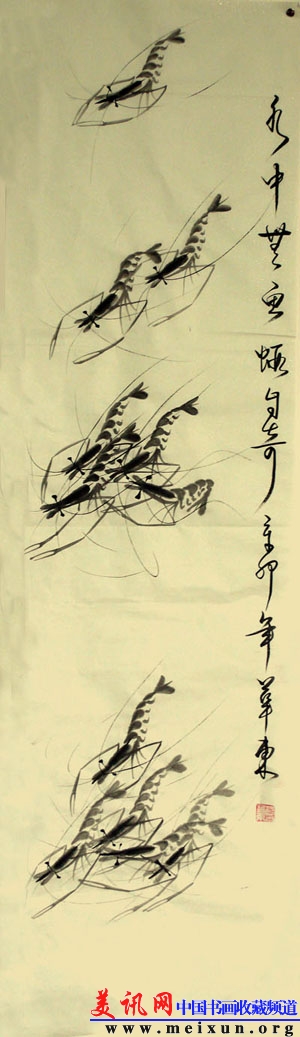 水中無魚蝦自奇辛卯年華東
美讯网 中国书画收藏频道
www.meixun.org